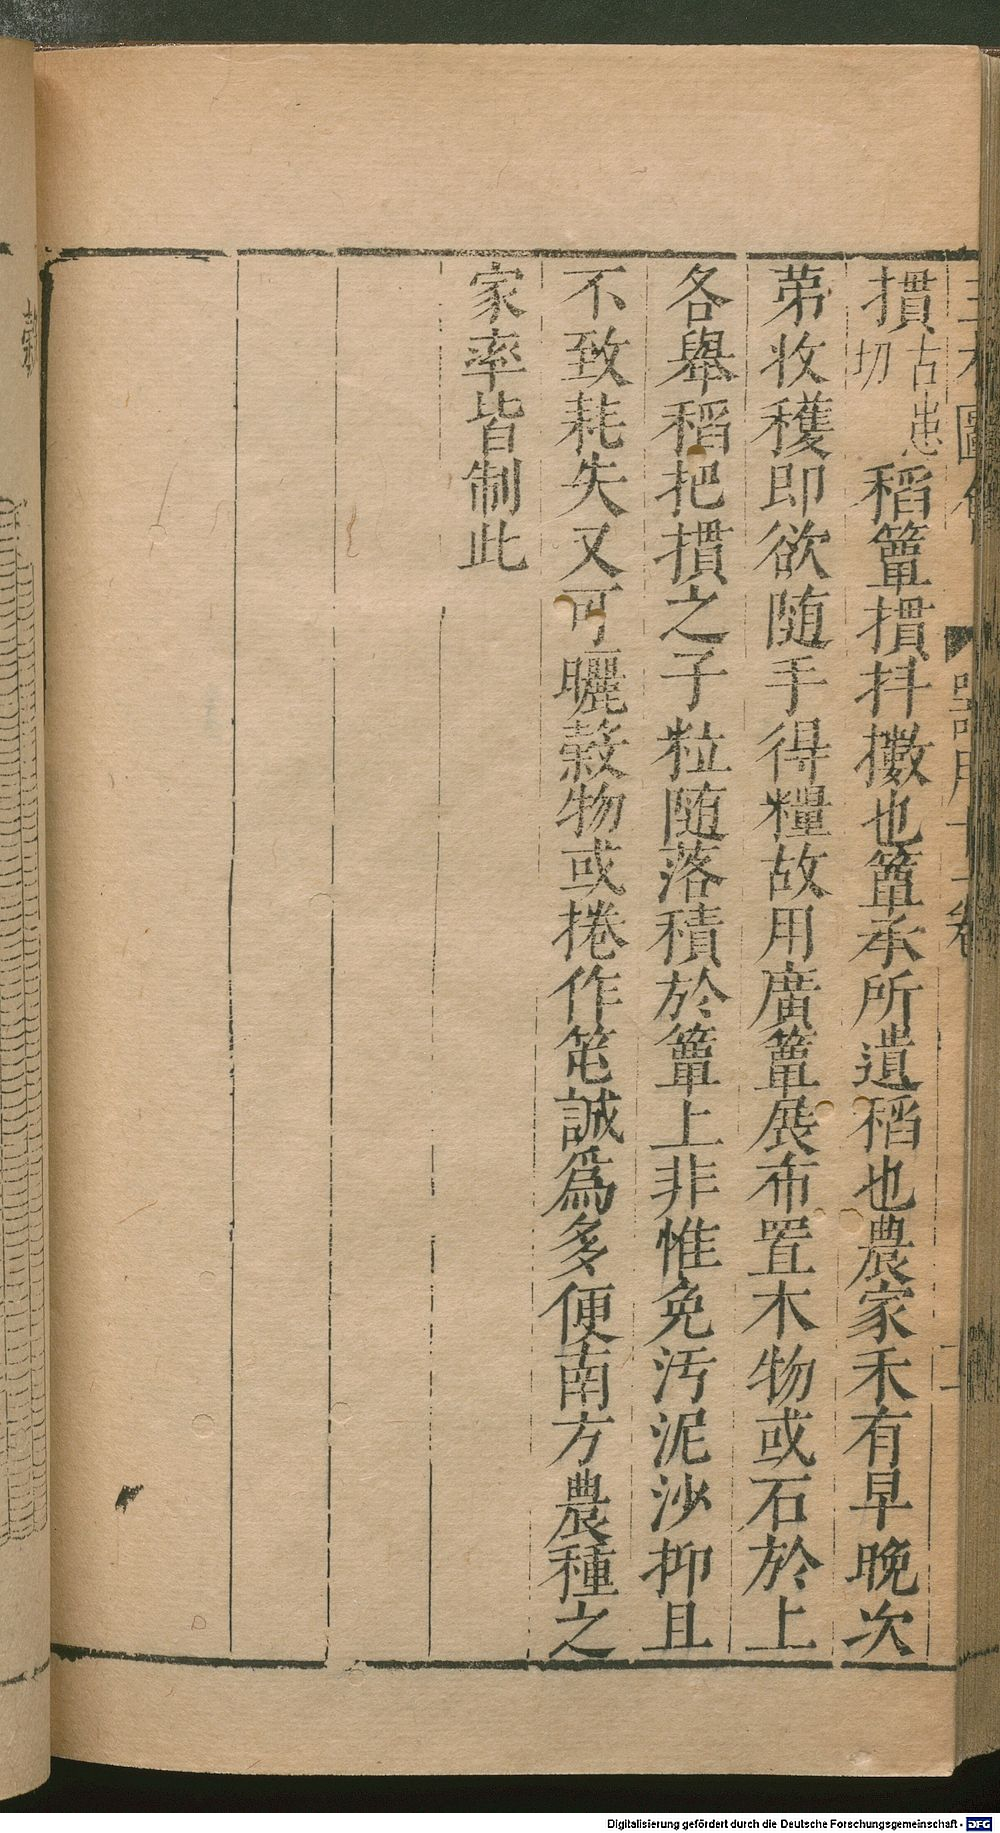 摜古患切稻簟摜抖擻也簟承所遺稻也農家禾有早晚次
苐收穫即欲随手得糧故用廣簟展布置木物或石於上
各舉稻把摜之子粒随落積於簟上非惟免汚泥沙抑且
不致耗失又可曬穀物或捲作笹誠爲多便南方農種之
家率皆制此
Digitalisierung gefördert durch die Deutsche Forschungsgemeinschaft - DFG